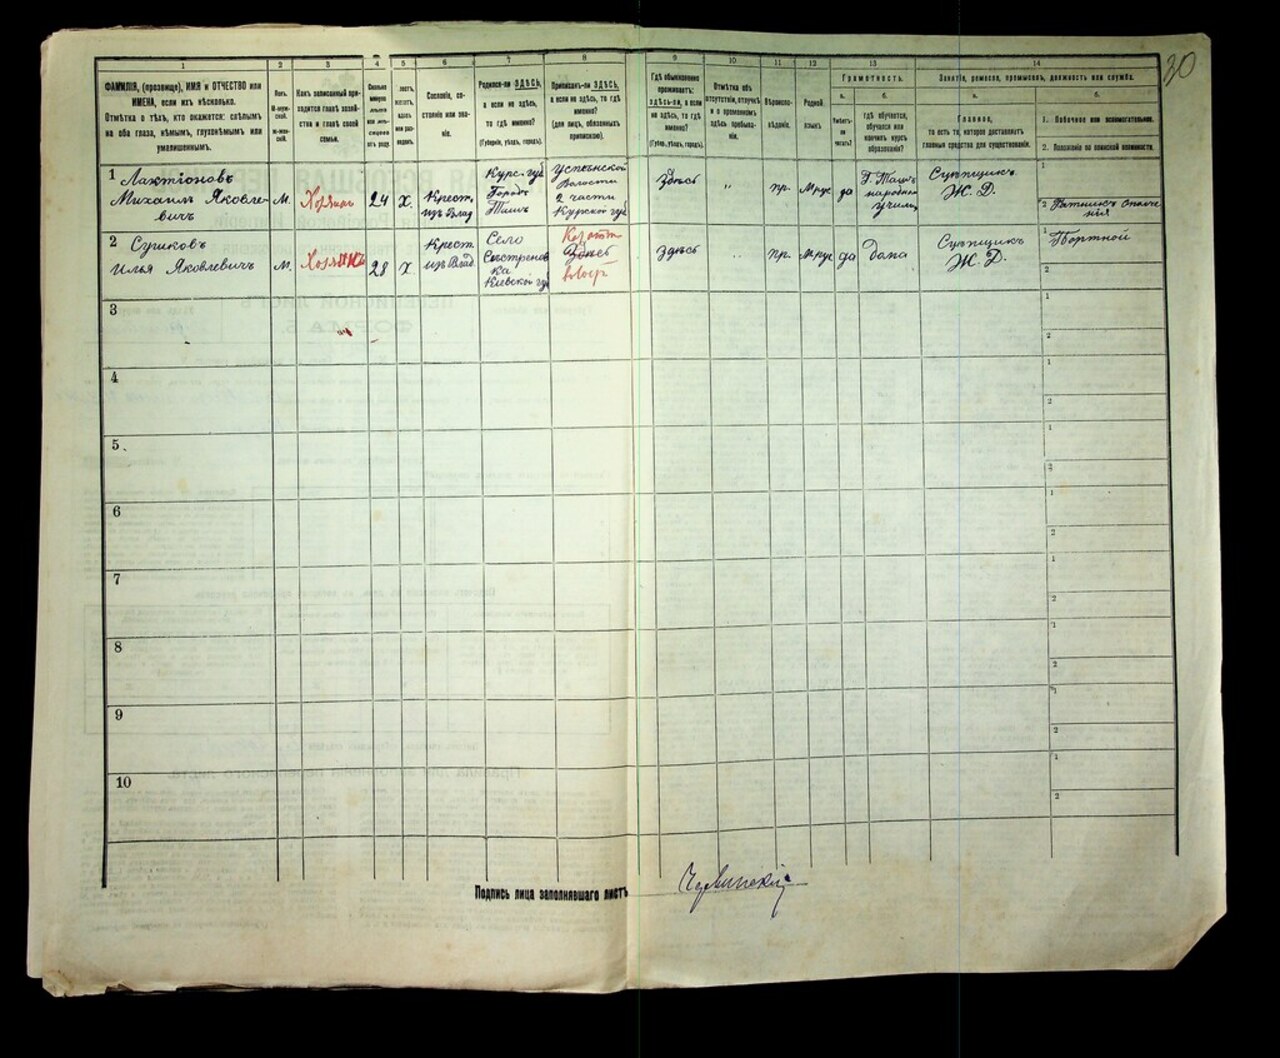 30
1 2 3 4 5 6 7 8 9 10 11 12 13 14
ФАМИЛІЯ, (прозвище), ИМЯ и ОТЧЕСТВО или
ИМЕНА, если ихъ нѣсколько.
Отмѣтка о тѣхъ, кто окажется: слѣпымъ
на оба глаза, нѣмымъ, глухонѣмымъ или
умалишеннымъ.
Полъ.
М-мужс-
кой.
ж-жен-
скій.
Какъ записанный при-
ходится главѣ хозяй-
ства и главѣ своей
семьи.
Сколько
минуло
лѣтъ
или мѣ-
сяцевъ
отъ роду.
Сословіе, со-
стояніе или зва-
ніе.
Родился-ли ЗДѢСЬ,
а если не здѣсь,
то гдѣ именно?
(Губернія, уѣздъ, городъ).
Приписан-ли ЗДѢСЬ,
а если не здѣсь, то гдѣ
именно?
(для лицъ, обязанныхъ
припискою).
Гдѣ обыкновенно
проживаетъ:
здѣсь-ли, а если
не здѣсь, то гдѣ
именно?
(Губер., уѣздъ, городъ).
Отмѣтка объ
отсутствіи, отлучкѣ
и о временномъ
здѣсь пребыва-
ніи.
Вѣроиспо-
вѣданіе.
Родной
языкъ
Грамотность.
а.
Умѣетъ-
ли
читать?
б.
гдѣ обучается,
обучался или
кончилъ курсъ
образованія?
Занятіе, ремесло, промыселъ, должность или служба.
а.
Главное,
то есть то, которое доставляетъ
главныя средства для существованія.
б.
1. Побочное или вспомогательное.
2. Положеніе по воинской повинности.
1 Лактіоновъ
Михаилъ Яковле-
вичъ
М.
Хозяинъ
24
Х.
Крест.
изъ Влад
Курс. губ
Городъ
Волости
2 части
Курской губ
Здѣсь
"
пр.
да
народное
Ж. Д.
1
2 Ратникъ Ополче
нія
2 Сушковъ
Илья Яковлевичъ
М.
Хозяинъ
28
Х
Крест.
изъ Влад.
Село
ка
Кіевской губ
Здѣсь
Здѣсь
"
пр.
да
дома
Ж. Д.
1 Портной
2
3
1
2
4
1
2
5
1
2
6
1
2
7
1
2
8
1
2
9
1
2
10
1
2
Подпись лица заполнявшаго листъ